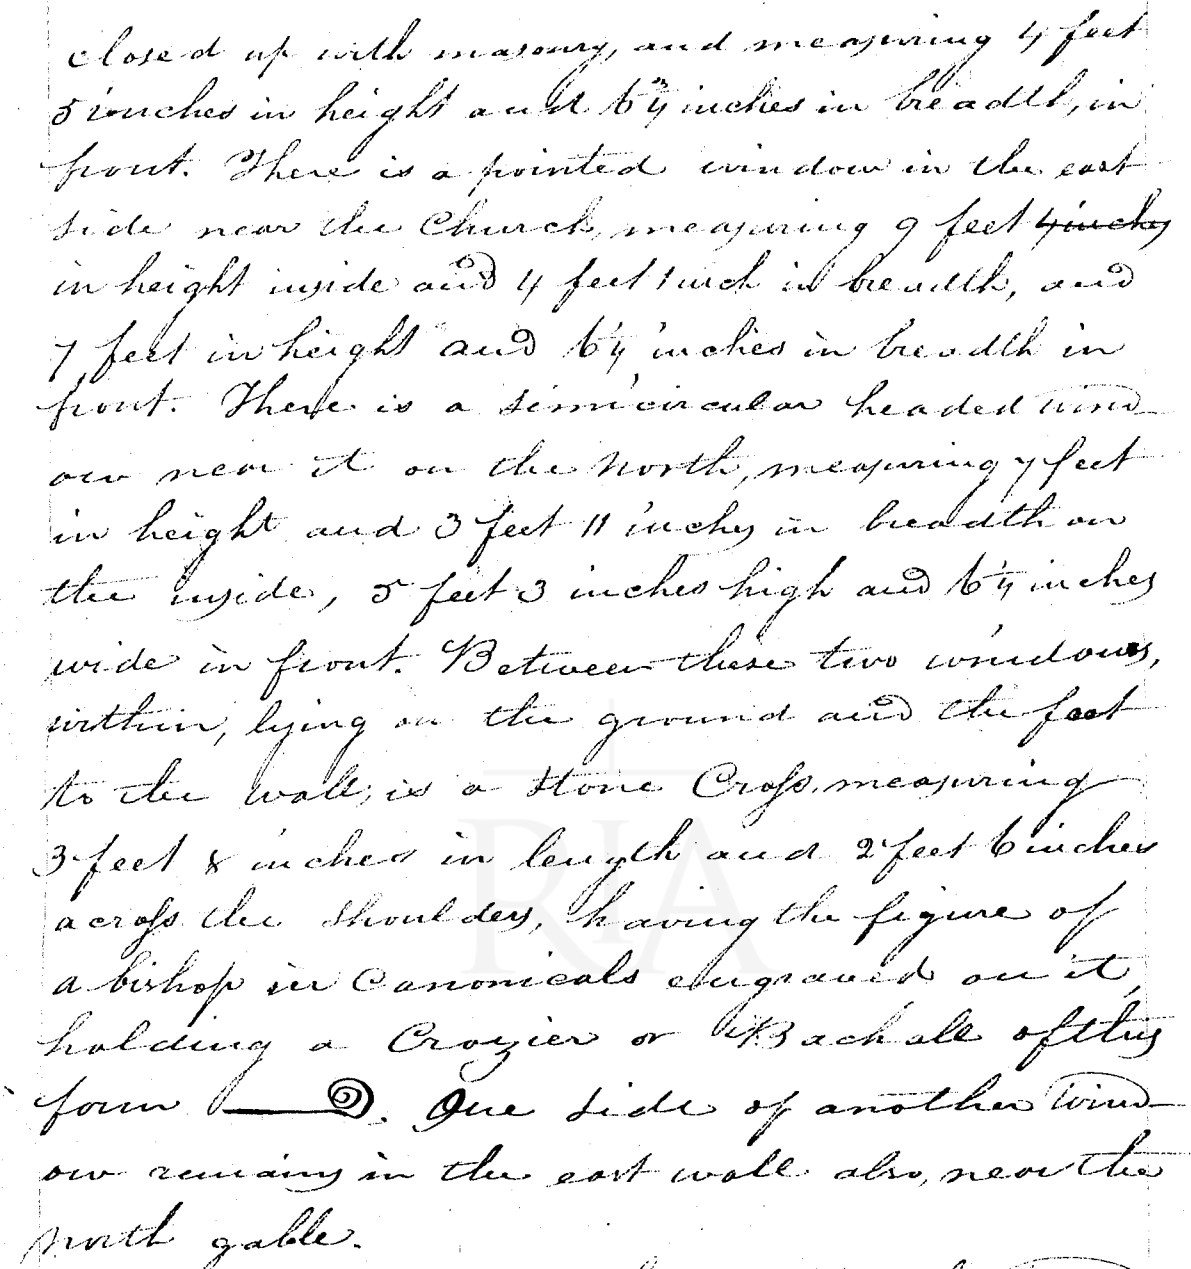 closed up with masonry, and measuring 4 feet
5 inches in height and 6¾ inches in breadth, in
front. There is a pointed window in the east
side near the Church, measuring 9 feet 4 inches
in height inside and 4 feet 1 inch in breadth, and
7 feet in height and 6¼ inches in breadth in
front. There is a semicircular headed wind
ow near it on the North, measuring 7 feet
in height and 3 feet 11 inches in breadth on
the inside, 5 feet 3 inches high and 6¼ inches
wide in front. Between these two windows,
within, lying on the ground and the foot
to the wall, is a Stone Cross, measuring
3 feet 8 inches in length and 2 feet 6 inches
across the shoulders, having the figure of
a bishop in Canonicals engraved on it,
holding a Crozier or Bachall of this
form . One side of another wind
ow remains in the east wall also, near the
north gable.
RIA